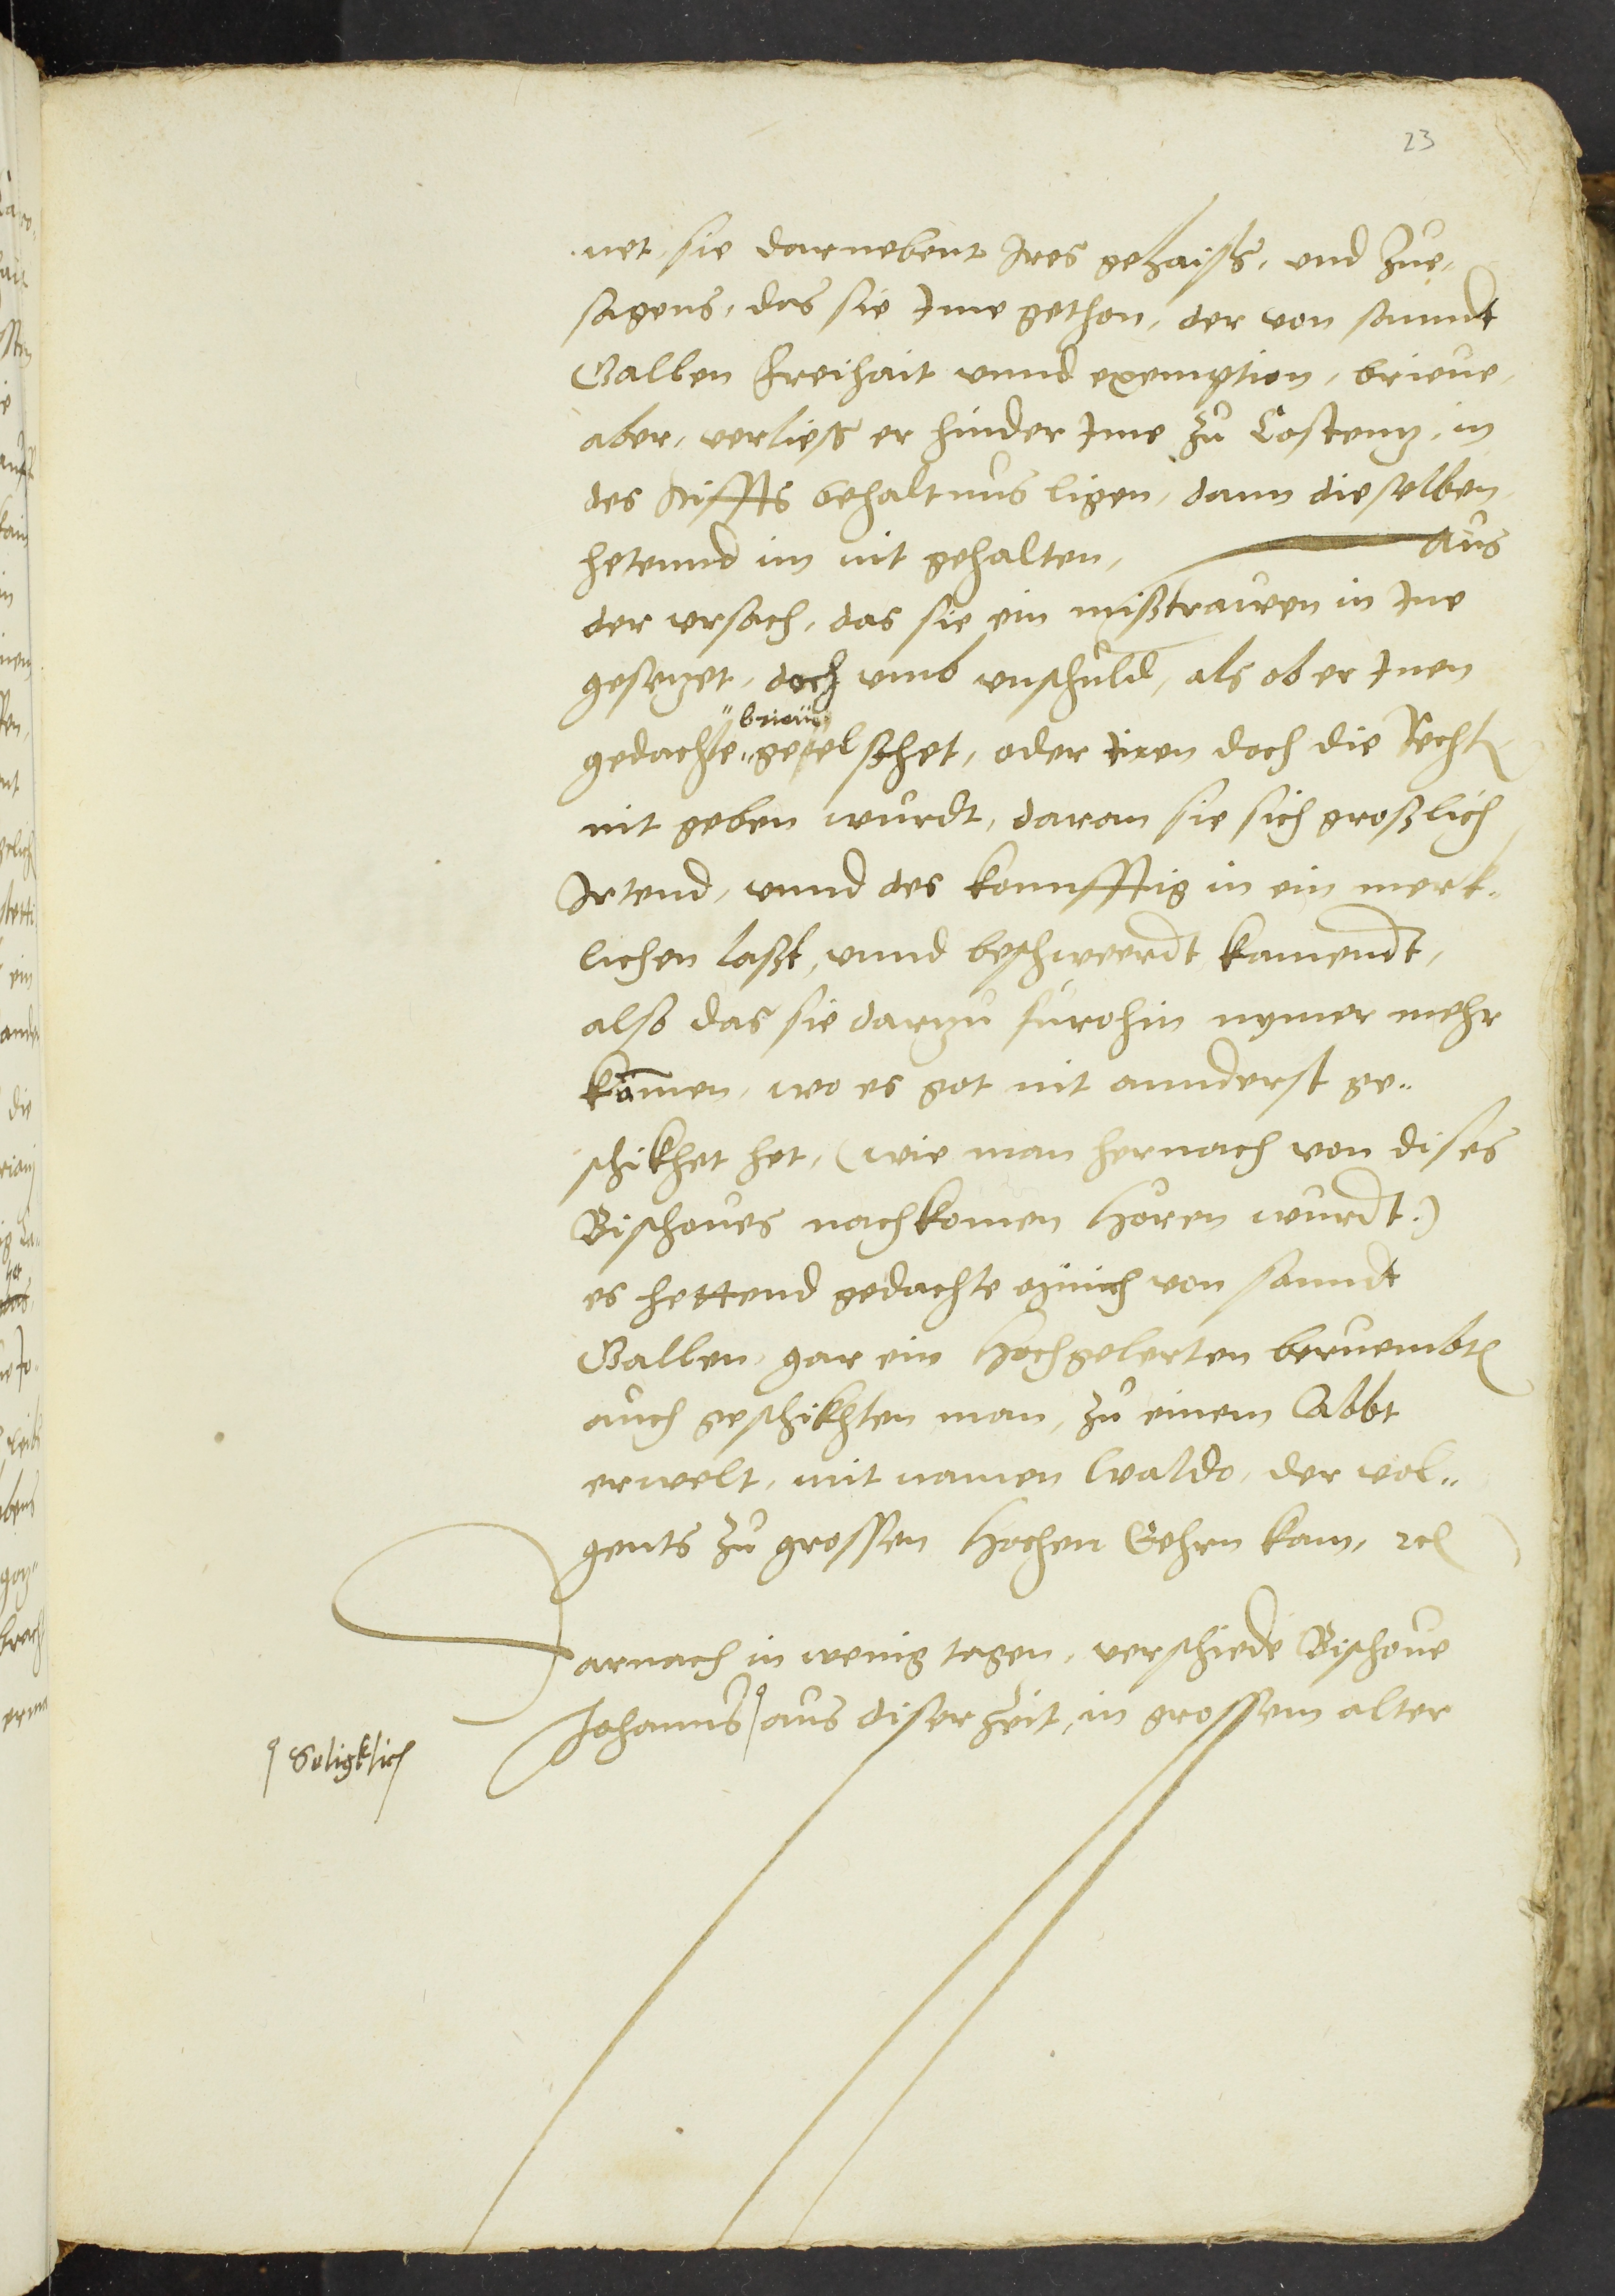 23
net, sie darnebent Ires gehaiss, und Zue„
sagens, das sie Ime gethon, der von sanndt
Gallen freihait vnnd exemption, brieue,
aber, verliess er hinder Ime Zu Costenz, in
des Stiffts behaltnus ligen, dann dieselben
hetennd im nit gehalten, Aus
der vrsach, das sie ein misstrauwen in Ine
gesezet, doch vmb vnschuld, als ob er Inen
brieue
gedachte gefelschet, oder Iren doch die Recht
nit geben wurdt, daran sie sich grosslich
Irtend, vnnd des konnfftig in ein merk„
lichen lasst, vnnd beschweerdt kamendt,
also das sie darzu furohin nymer mehr
kämen, wo es got nit annderst ge„
schikhet het, (wie man hernach von dises
Bischoues nachkomen Horen wurdt:)
es hettend gedachte münich von sanndt
Gallen, gar ein Hochgelerten beruembte
auch geschikhten man, Zu einem Abbt
erwelt, mit namen Waldo, der vol„
gents Zu grossen Hochen Eehrn kam, etc
Darnach in wenig tagen, verschiede Bischoue
Johanns aus diser Zeit, in grossem alter
Seligklich